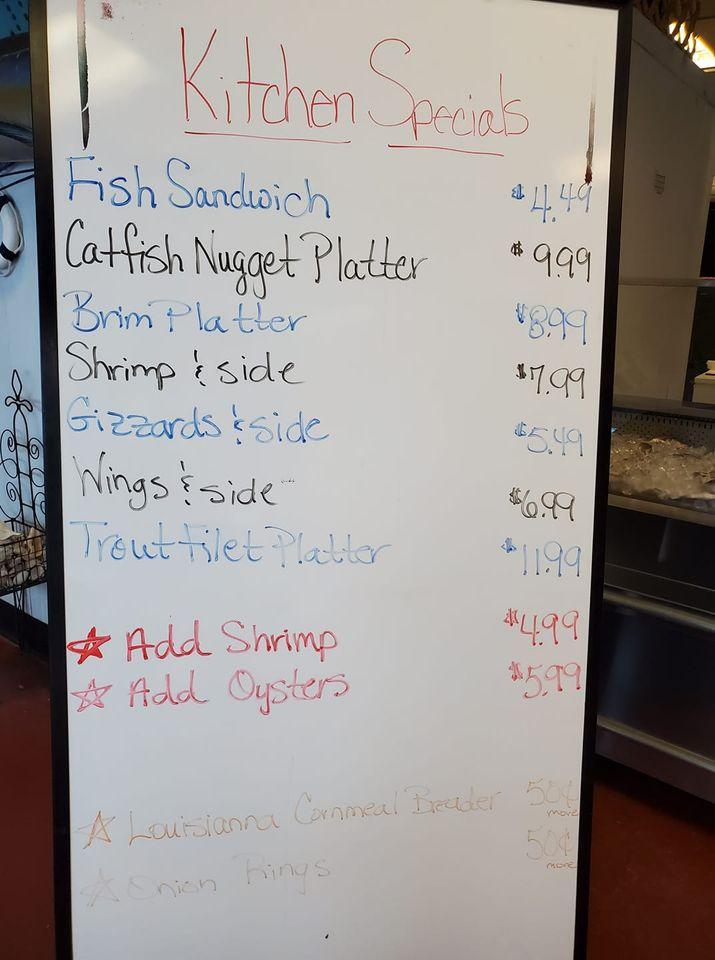 Kitchen Specials
Fish Sandwich $4.49
Catfish Nugget Platter $9.99
Brim Platter $8.99
Shrimp & side $7.99
Gizzards & side $5.49
Wings & side $6.99
Trout Filet Platter $11.99
☆ Add Shrimp $4.99
☆ Add Oysters $5.99
☆ Louisianna Cornmeal Breader 50¢ more
☆ Onion Rings 50¢ more